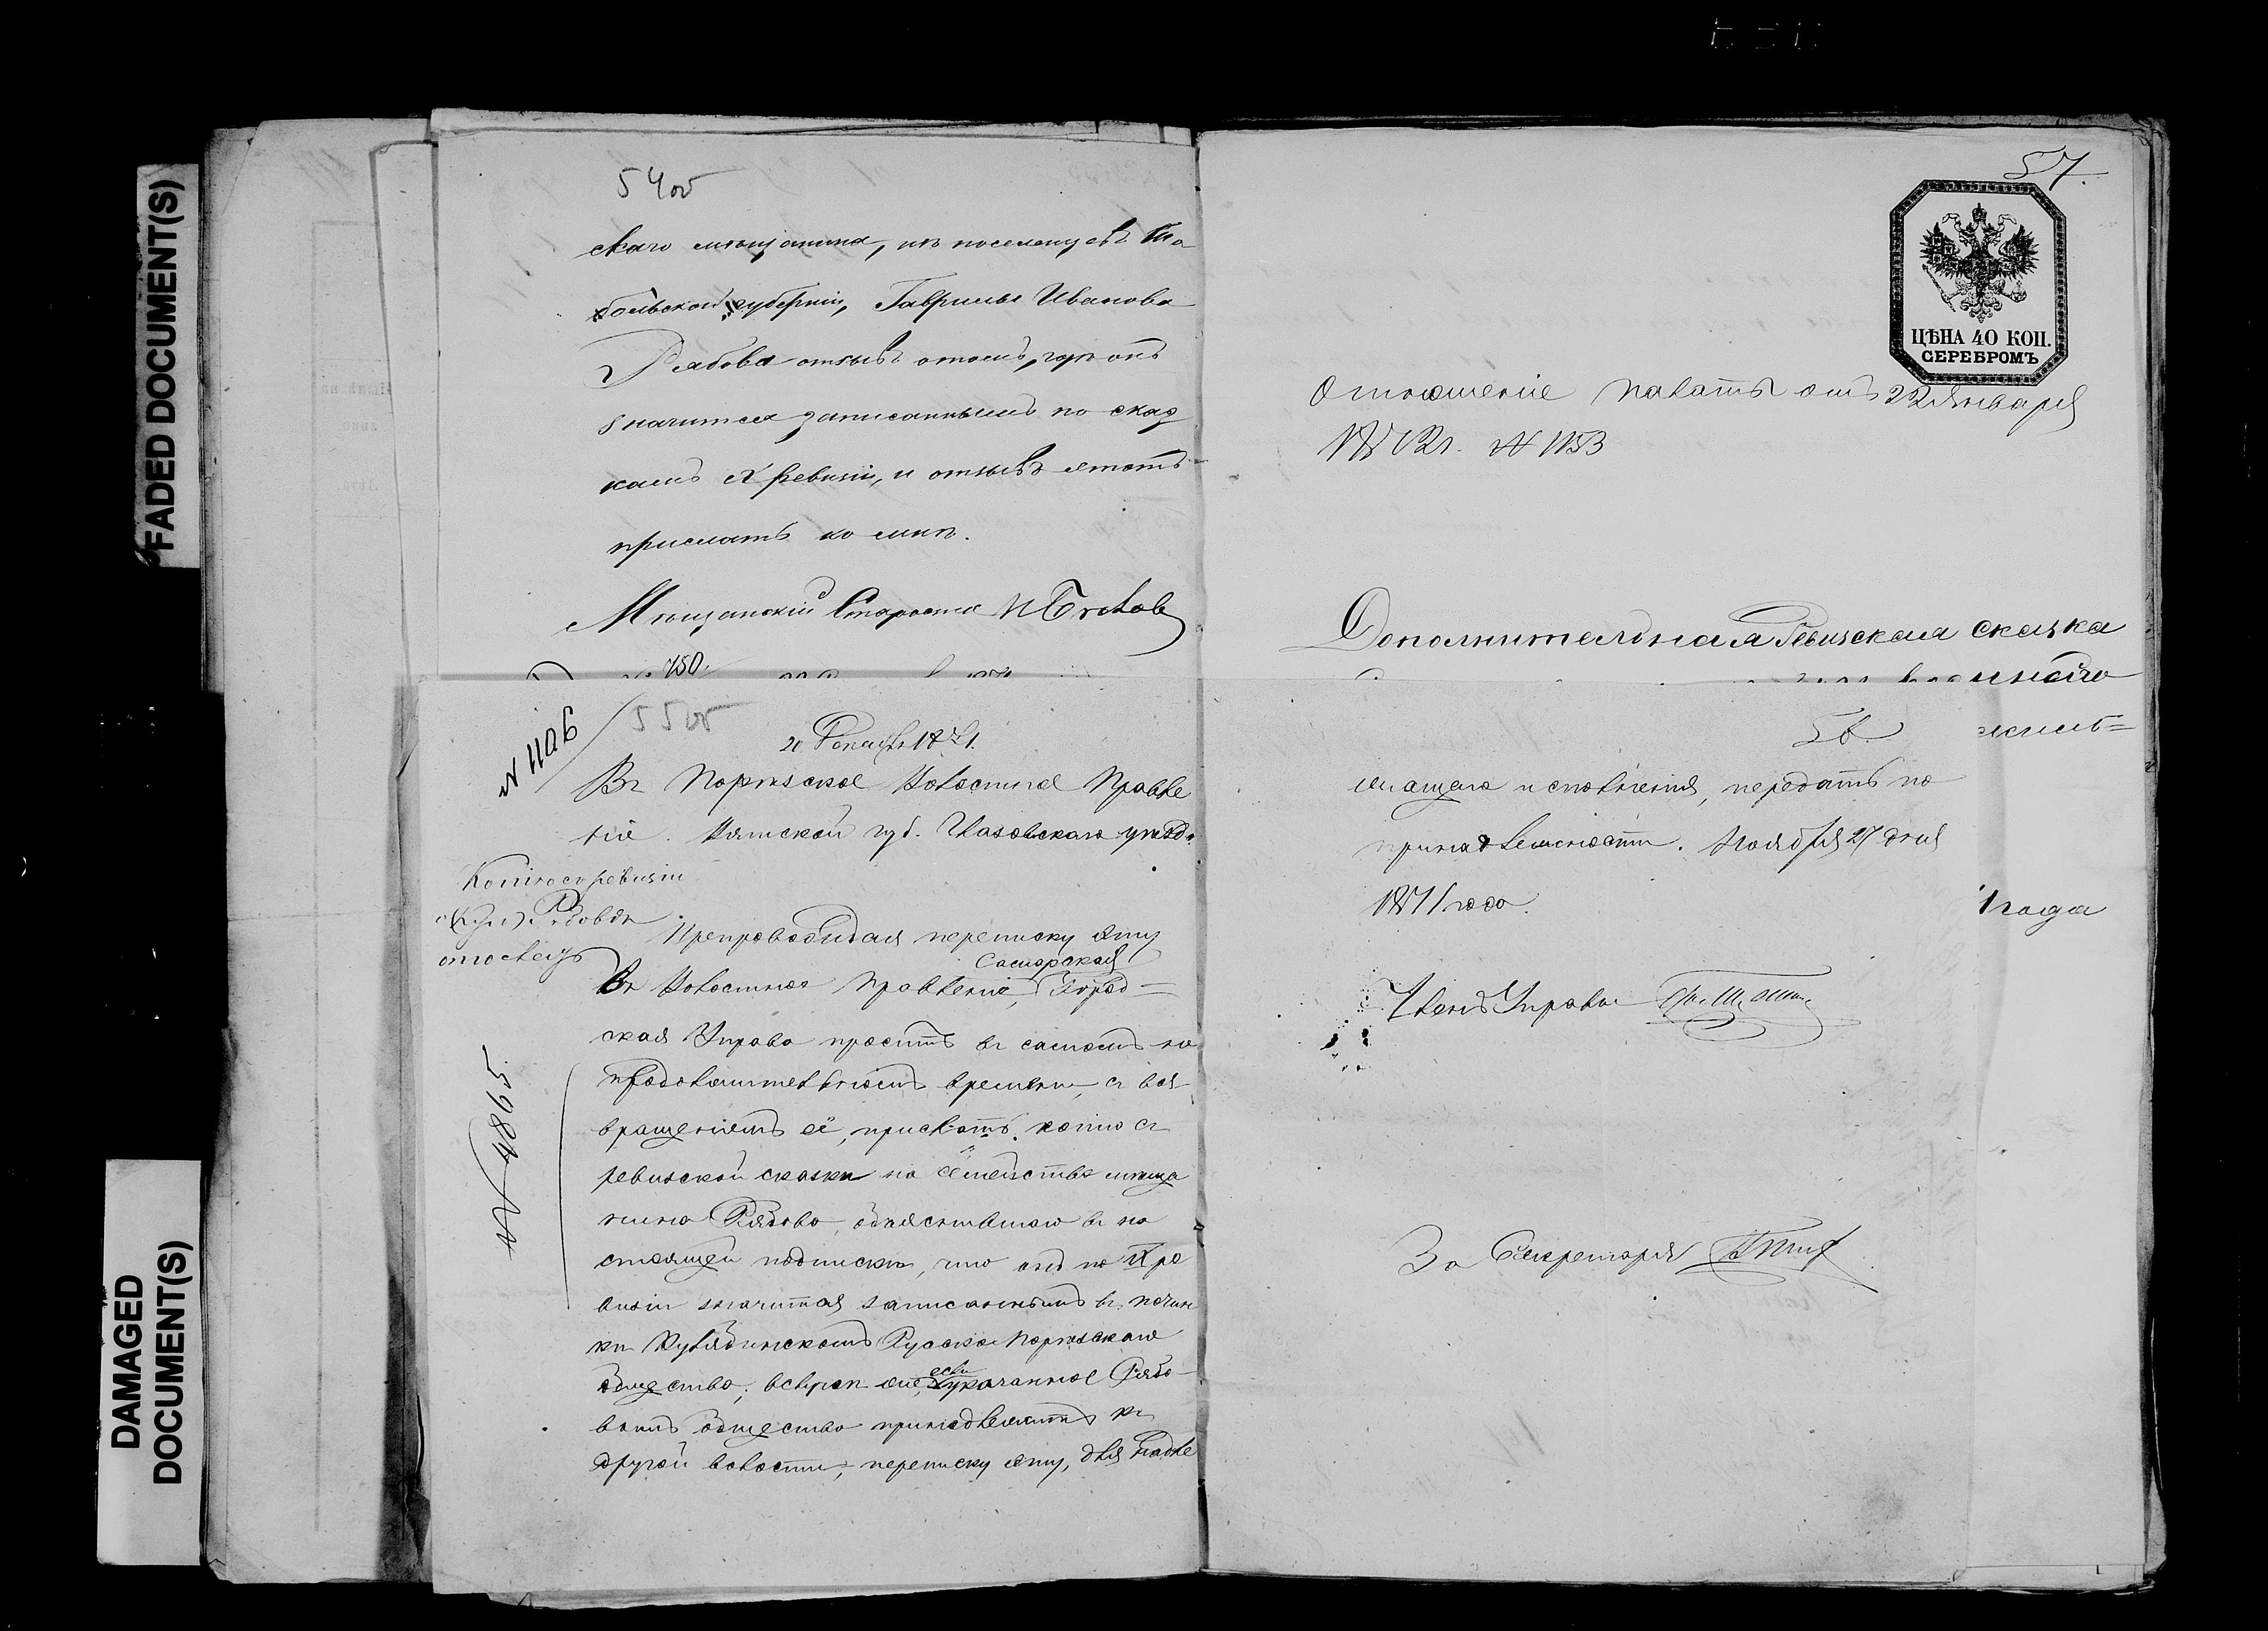 FADED DOCUMENT(S)
DAMAGED
DOCUMENT(S)
54 об
скаго мѣщанина, изъ поселенцевъ То
больской губерніи, Гаврилы Иванова
Рябова отзывъ о томъ, гдѣ онъ
значится записаннымъ по сказ
камъ X ревизіи, и отзывъ этотъ
прислать ко мнѣ.
Мѣщанскій Староста
750.
№ 1106
55 об
20 Декабр 1871.
Въ Порѣзское Волостное Правле
ніе. Вятской губ. Глазовскаго уѣзда.
Копію съ ревизіи
Рябовѣ
Препровождая переписку эту
Самарская
въ Волостное Правленіе, Город=
ская Управа проситъ въ самомъ не
продолжительномъ времени, съ воз
вращеніемъ её, прислать копію съ
ревизской сказки на семейство мѣща
нина Рябова, объяснившаго въ на
стоящей подпискѣ, что онъ по X ре
визіи значится записаннымъ въ почин
кѣ Русско Порѣзскаго
общества; если указанное Рябо-
вымъ общество принадлежитъ къ
другой волости, переписку эту, для надле
№ 4865
57.
ЦѢНА 40 КОП.
СЕРЕБРОМЪ
Отношеніе палаты отъ 22 Января
1872 г. № 1153
Дополнительная Ревизская сказка
56.
жащаго исполненія, передать по
принадлежности. Ноября 27 дня
1871 года.
года
Членъ Управы
За Секретаря